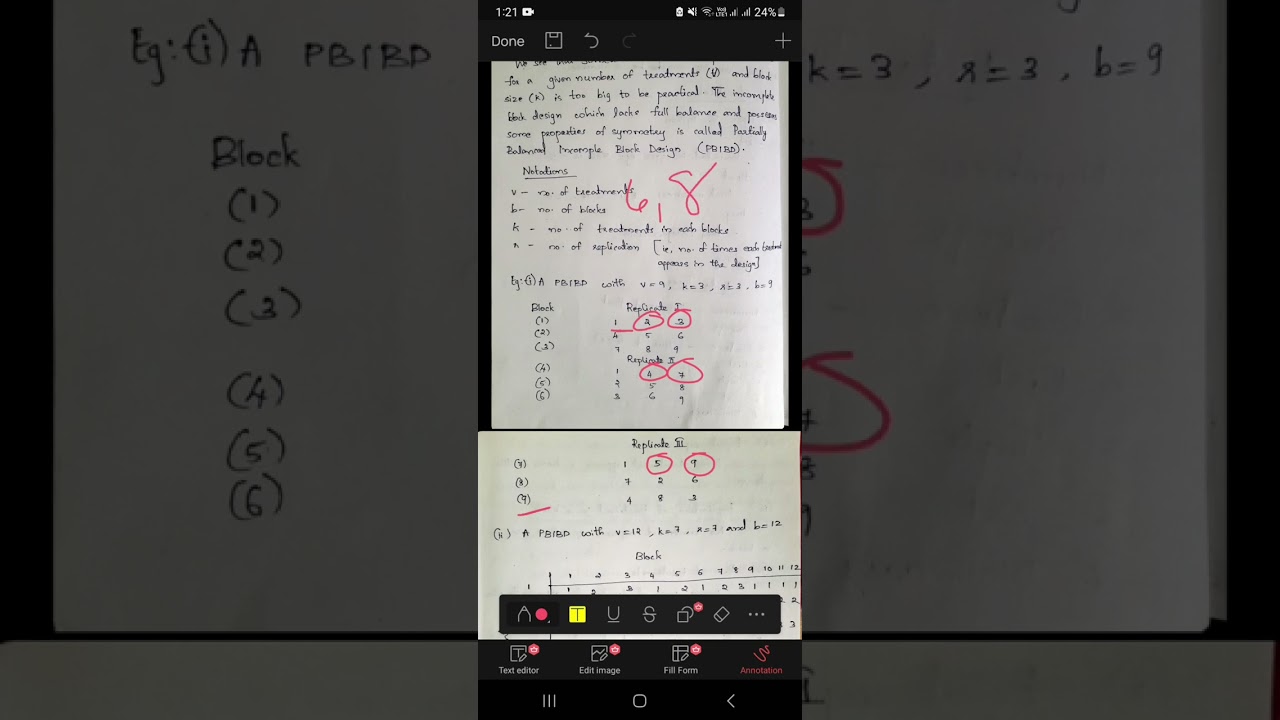 1:21
24%
Done
for a given number of treatments (V) and block
size (k) is too big to be practical. The incomplete
block design which lacks full balance and possess
some properties of symmetry is called Partially
Balanced Incomple Block Design (PBIBD).
Notations
v - no. of treatments
b - no. of blocks
k - no. of treatments in each blocks
r - no. of replication [ie, no. of times each treatment
appears in the design]
6, 8
Eg: (i) A PBIBD with v=9, k=3, r=3, b=9
Block Replicate I
(1) 1 2 3
(2) 4 5 6
(3) 7 8 9
Replicate II
(4) 1 4 7
(5) 2 5 8
(6) 3 6 9
Replicate III
(7) 1 5 9
(8) 7 2 6
(9) 4 8 3
(ii) A PBIBD with v=12, k=7, r=7 and b=12
Block
1 2 3 4 5 6 7 8 9 10 11 12
1 1 2 3 1 2 1 2 3 1 1 1 1
2 2
3
Text editor
Edit image
Fill Form
Annotation
Eg: (i) A PBIBD
k=3, r=3, b=9
Block
(1)
(2)
(3)
(4)
(5)
(6)